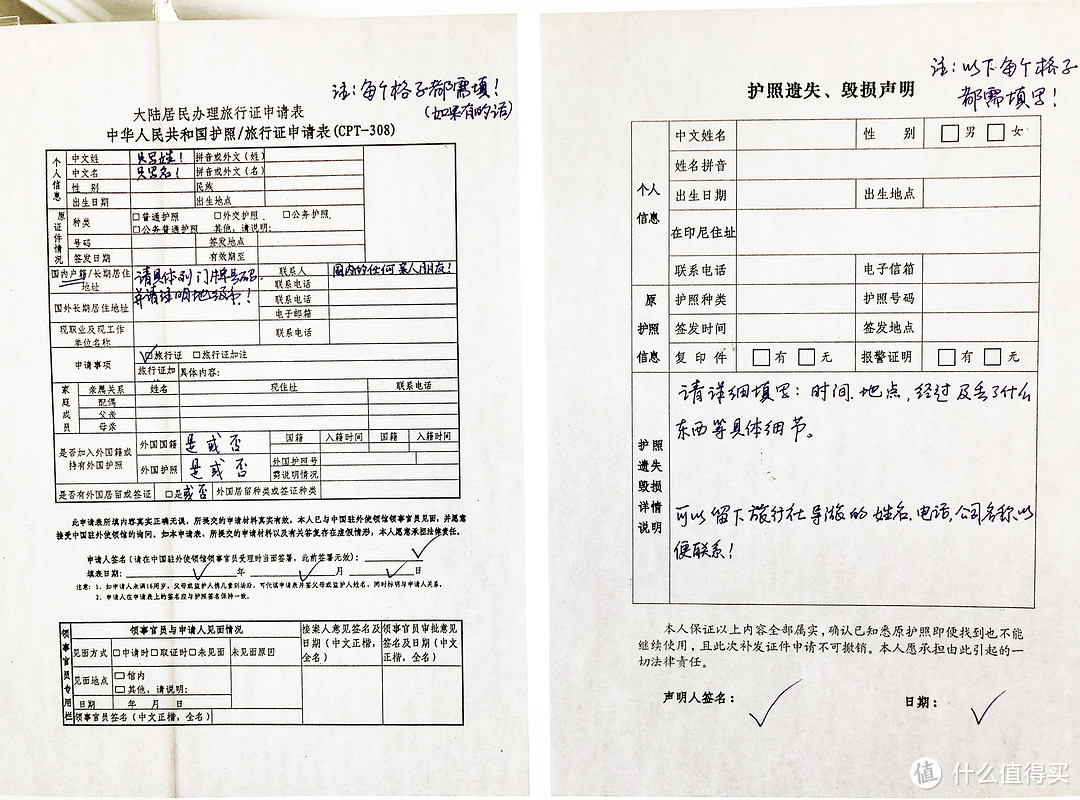 注：每个格子都需填！
（如果有的话）
大陆居民办理旅行证申请表
中华人民共和国护照/旅行证申请表(CPT-308)
个人信息
中文姓 只写姓！ 拼音或外文（姓）
中文名 只写名！ 拼音或外文（名）
性 别 民族
出生日期 出生地点
原证件情况
种类 □普通护照 □外交护照. □公务护照.
□公务普通护照 其他，请说明:
号码 签发地点
签发日期 有效期至
国内户籍/长期居住地址 请具体到门牌号码. 联系人 国内的任何亲人朋友！
并请注明地级市！ 联系电话
国外长期居住地址 联系电话
电子邮箱
现职业及现工作单位名称 联系电话
申请事项 □旅行证 □旅行证加注
旅行证加 具体内容:
家庭成员
亲属关系 姓名 现住址 联系电话
配偶
父亲
母亲
是否加入外国国籍或持有外国护照
外国国籍 是或否 国籍 入籍时间 国籍 入籍时间
外国护照 是或否 外国护照号
需说明情况
是否有外国居留或签证 □是或否 外国居留种类或签证种类
此申请表所填内容真实正确无误，所提交的申请材料真实有效，本人已与中国驻外使领馆领事官员见面，并愿意
接受中国驻外使领馆的询问。如本申请表、所提交的申请材料以及有关答复存在虚假情形，本人愿意承担法律责任。
申请人签名（请在中国驻外使领馆领事官员受理时当面签署，此前签署无效）:
填表日期: 年 月 日
注意：1、如申请人未满16周岁，父母或监护人携儿童到场后，可代填申请表并签父母或监护人姓名，同时标明与申请人关系。
2、申请人在申请表上的签名应与护照签名保持一致。
领事官员专用栏
领事官员与申请人见面情况 接案人意见签名及日期（中文正楷，全名） 领事官员审批意见签名及日期（中文正楷，全名）
见面方式 □申请时□取证时□未见面 未见面原因
见面地点 □馆内
□其他，请说明:
日期 年 月 日
领事官员签名（中文正楷，全名）
注：以下每个格子
都需填写！
护照遗失、毁损声明
个人信息
中文姓名 性 别 □男 □女
姓名拼音
出生日期 出生地点
在印尼住址
联系电话 电子信箱
原护照信息
护照种类 护照号码
签发时间 签发地点
复印件 □有 □无 报警证明 □有 □无
护照遗失毁损详情说明
请详细填写：时间、地点，经过及丢了什么
东西等具体细节。
可以留下旅行社导游的姓名、电话，公司名称以
便联系！
本人保证以上内容全部属实，确认已知悉原护照即便找到也不能
继续使用，且此次补发证件申请不可撤销。本人愿承担由此引起的一
切法律责任。
声明人签名： 日期：
值 什么值得买